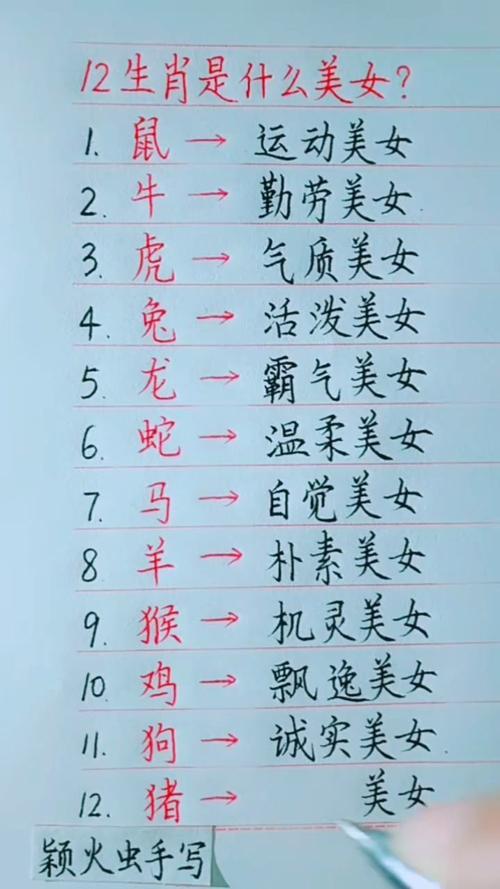 12生肖是什么美女?
1. 鼠→ 运动美女
2. 牛→ 勤劳美女
3. 虎→ 气质美女
4. 兔→ 活泼美女
5. 龙→ 霸气美女
6. 蛇→ 温柔美女
7. 马→ 自觉美女
8 羊→ 朴素美女
9. 猴→ 机灵美女
10. 鸡→ 飘逸美女
11. 狗→ 诚实美女
12. 猪→ 美女
颖火虫手写